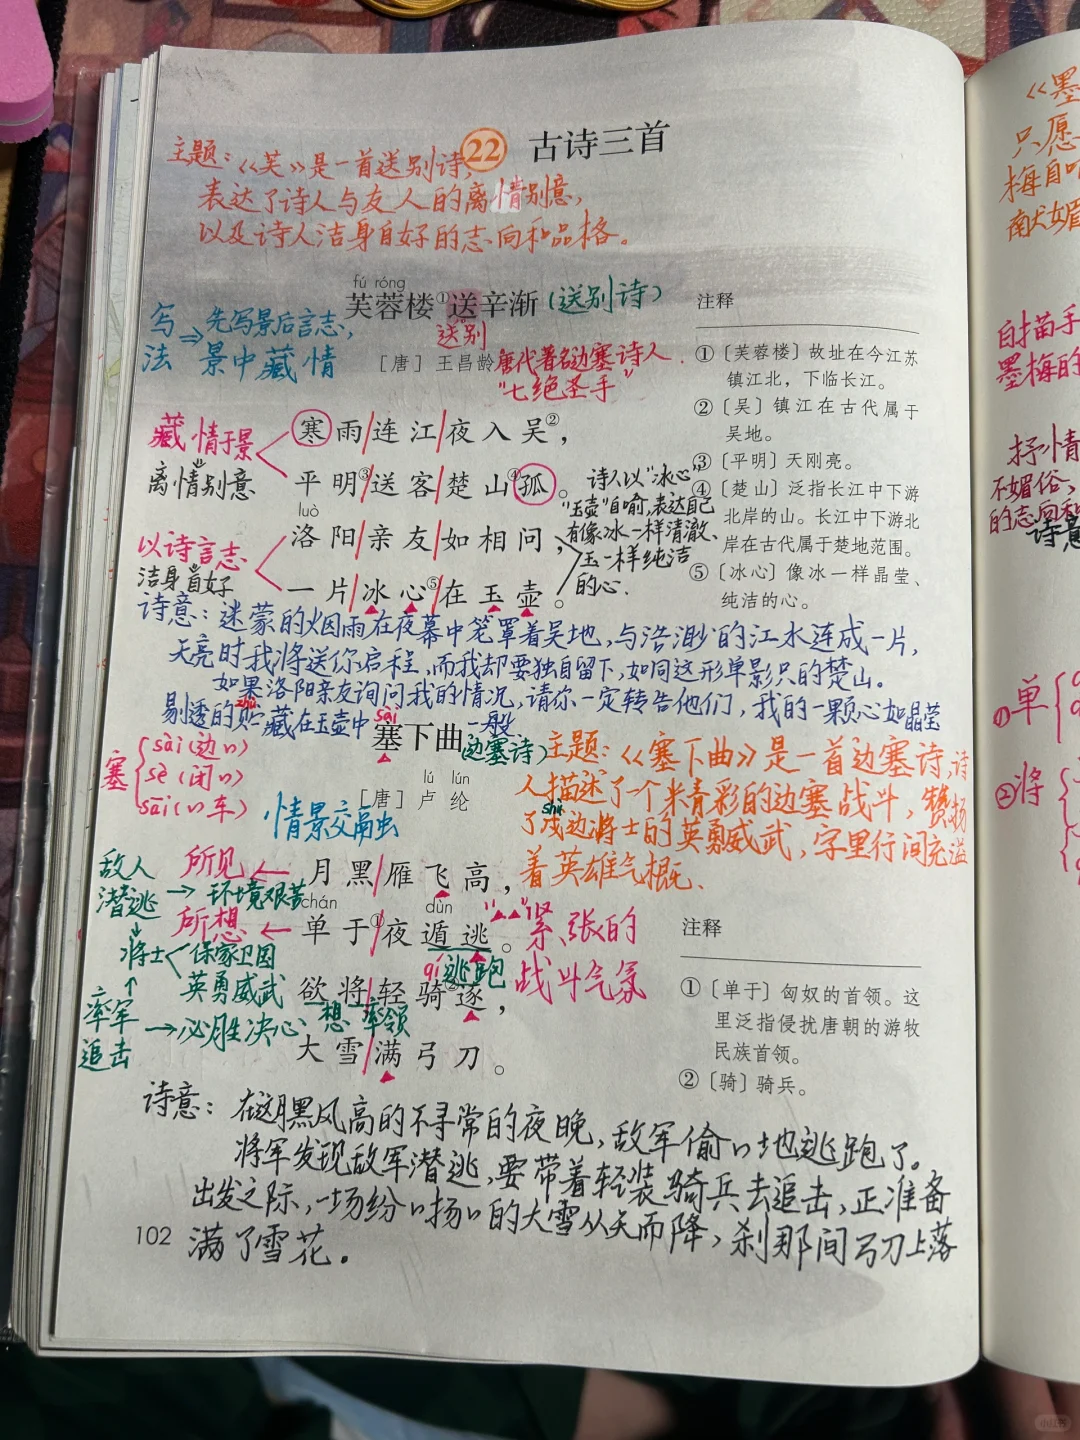 22 古诗三首
主题：《芙》是一首送别诗，
表达了诗人与友人的离情别意，
以及诗人洁身自好的志向和品格。
fú róng
芙蓉楼①送辛渐（送别诗）
送别
写法⇒先写景后言志，
景中藏情
［唐］王昌龄
唐代著名边塞诗人
“七绝圣手”
寒雨/连江/夜入吴②，
平明③/送客/楚山④孤。
luò
洛阳/亲友/如相问，
一片/冰心⑤/在玉壶。
藏情于景
离情别意
以诗言志
洁身自好
诗人以“冰心”
“玉壶”自喻，表达自己
有像冰一样清澈、
玉一样纯洁
的心．
注释
①〔芙蓉楼〕故址在今江苏
镇江北，下临长江。
②〔吴〕镇江在古代属于
吴地。
③〔平明〕天刚亮。
④〔楚山〕泛指长江中下游
北岸的山。长江中下游北
岸在古代属于楚地范围。
⑤〔冰心〕像冰一样晶莹、
纯洁的心。
诗意：迷蒙的烟雨在夜幕中笼罩着吴地，与浩渺的江水连成一片，
天亮时我将送你启程，而我却要独自留下，如同这形单影只的楚山。
如果洛阳亲友询问我的情况，请你一定转告他们，我的一颗心如晶莹
剔透的贮藏在玉壶中一般
zhù
sài
塞下曲（边塞诗）
［唐］卢纶
lú lún
塞
sài（边〃）
sè（闭〃）
sāi（〃车）
情景交融
主题：《塞下曲》是一首边塞诗，诗
人描述了一个精彩的边塞战斗，赞扬
了戍边将士的英勇威武，字里行间充溢
shù
着英雄气概、
月黑/雁飞高，
chán dùn
单于①/夜遁逃。
逃跑
欲将/轻骑②逐，
qí
想 率领
大雪/满弓刀。
所见←
所想←
敌人
潜逃→环境艰苦
将士
保家卫国
英勇威武
率军
追击→必胜决心
“▲▲”紧张的
战斗气氛
注释
①〔单于〕匈奴的首领。这
里泛指侵扰唐朝的游牧
民族首领。
②〔骑〕骑兵。
诗意：在这月黑风高的不寻常的夜晚，敌军偷〃地逃跑了。
将军发现敌军潜逃，要带着轻装骑兵去追击，正准备
出发之际，一场纷〃扬〃的大雪从天而降，刹那间弓刀上落
满了雪花．
102
《墨
只愿
梅自
献媚
自描手
墨梅的
抒情
不媚俗，
的志向和
诗意
①单
②将
小红书